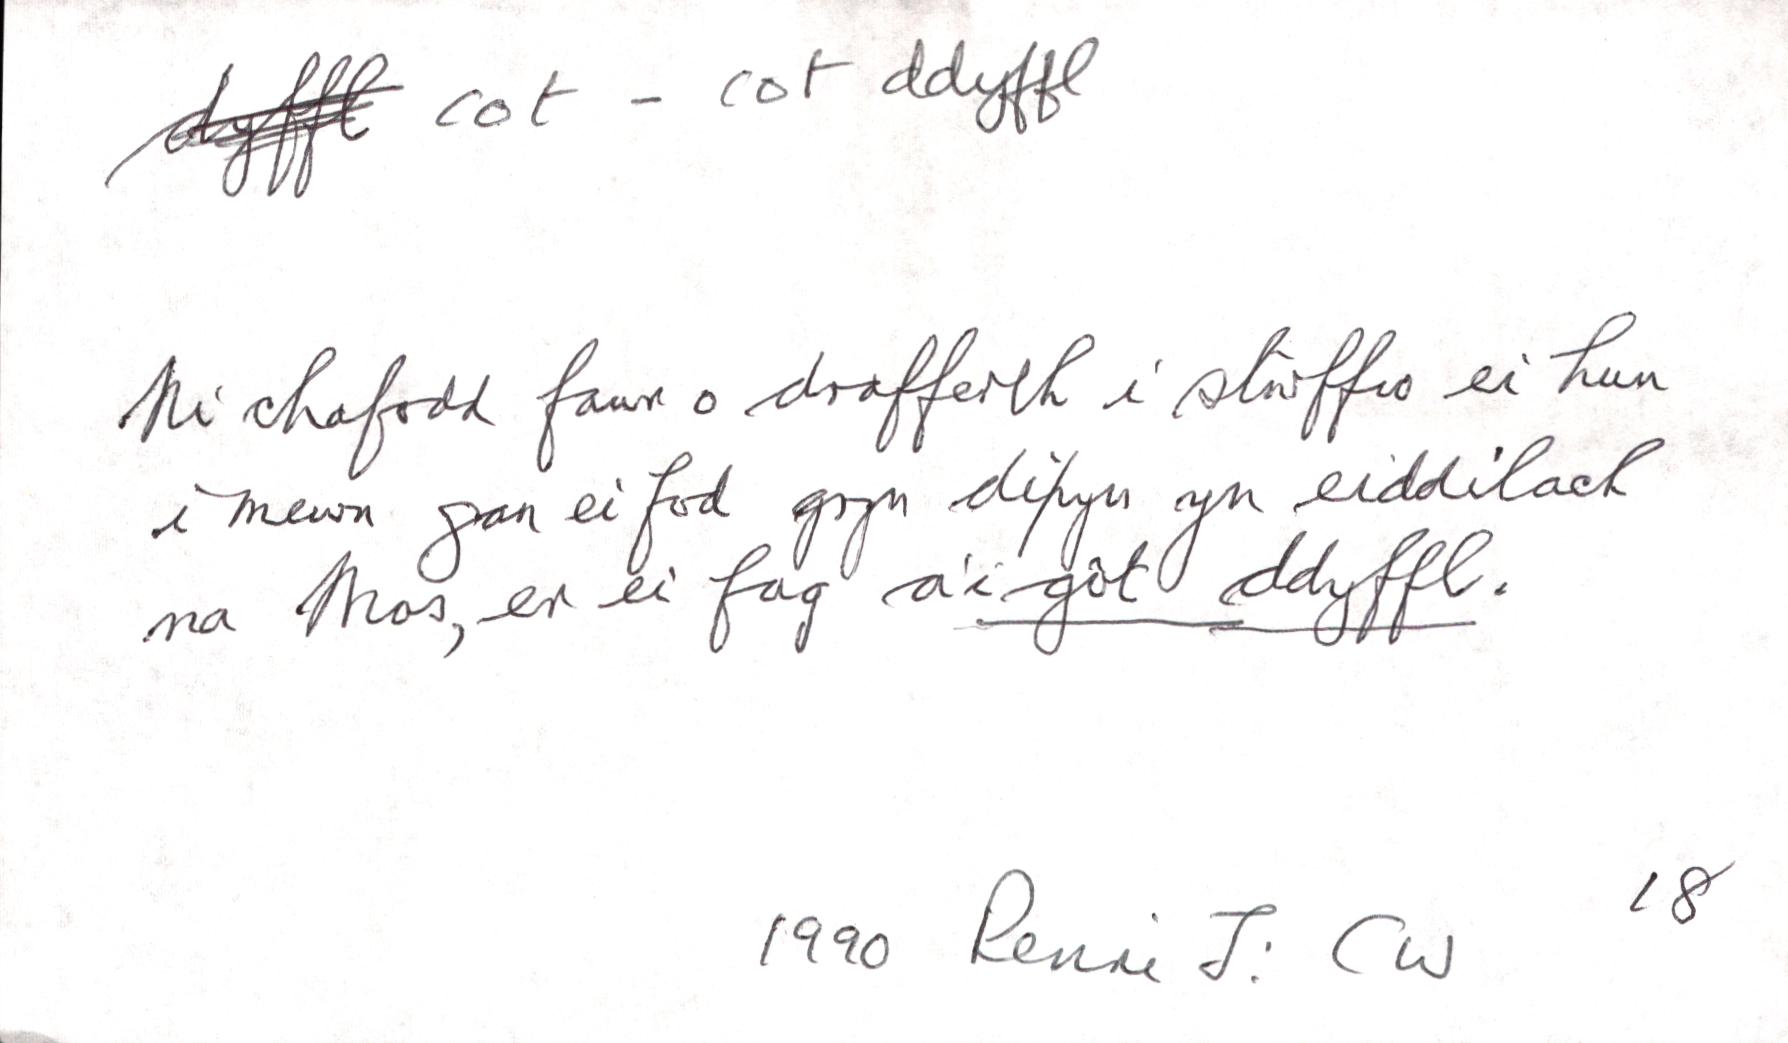 dyffl cot - cot ddyffl
Ni chafodd fawr o drafferth i stwffio ei hun
i mewn gan ei fod gryn dipyn yn eiddilach
na Mos, er ei fag a'i gôt ddyffl.
18
1990 Rennie J: CW